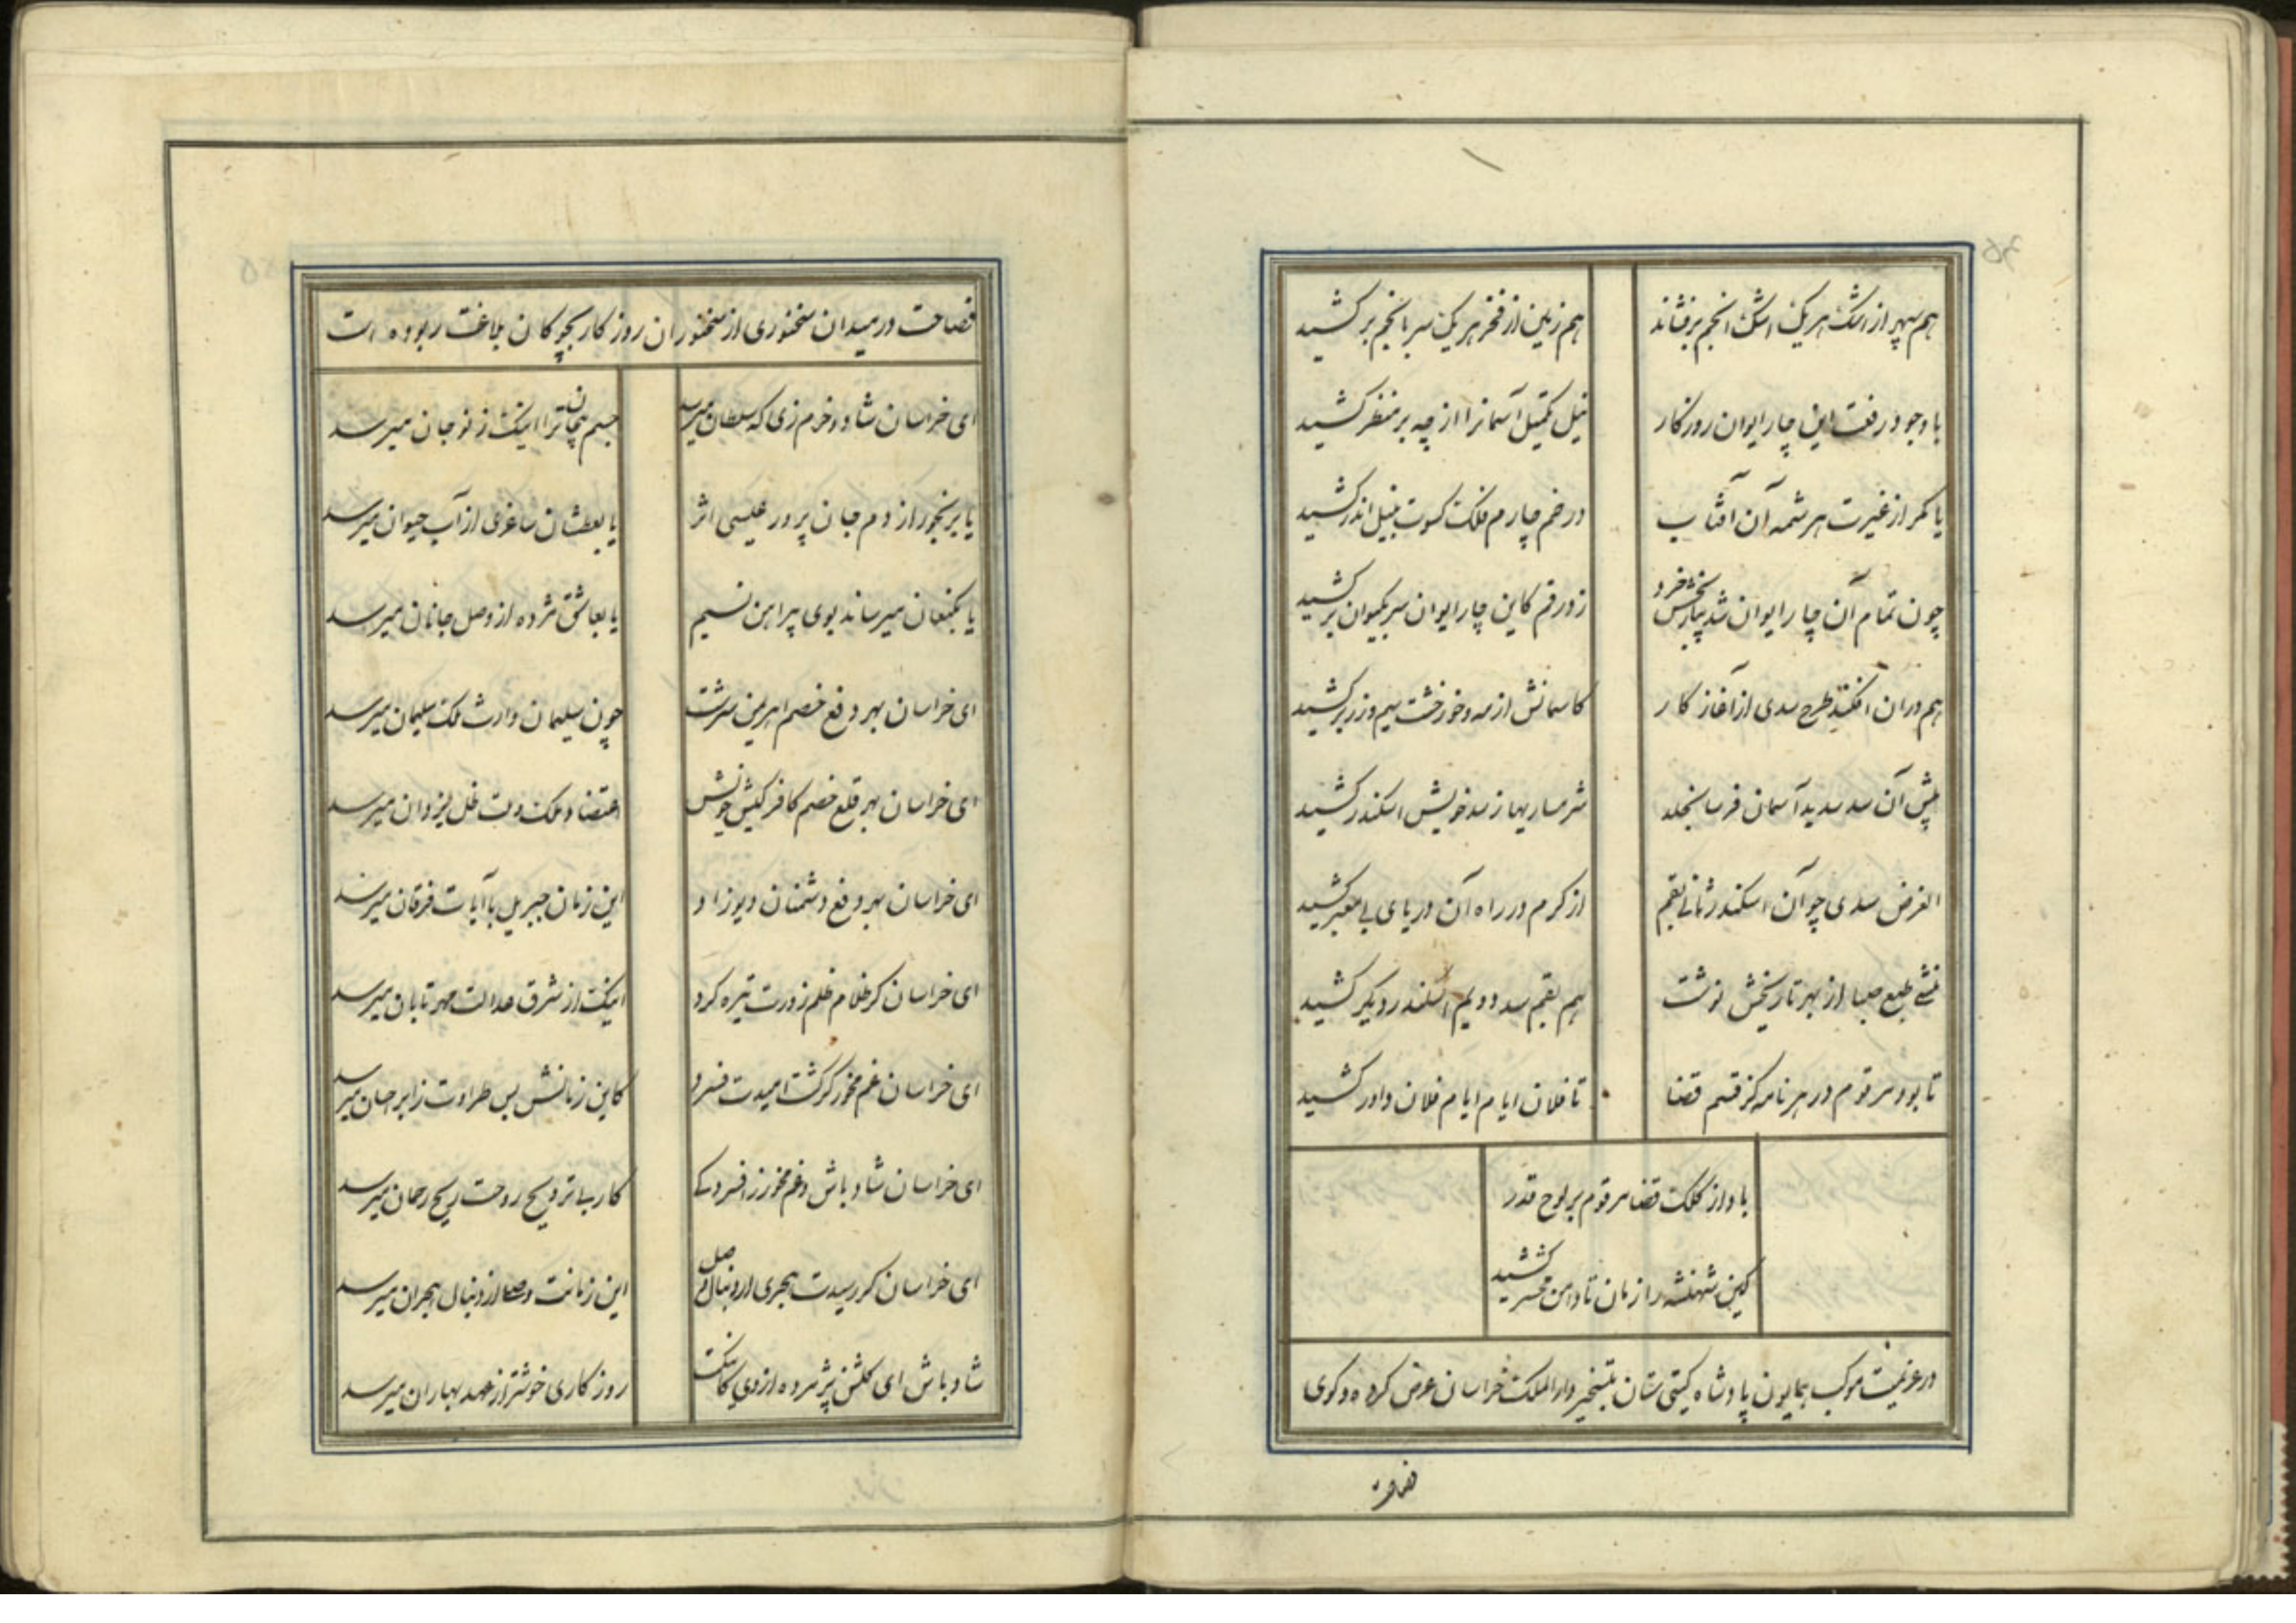 هم سپهر از اشک هر یک اشک انجم برفشاند
هم زمین از فخر هر یک سر بانجم برکشید
با وجود رفعت این چار ایوان روزگار
نیل تکمیل آسمانرا از چه بر منظر کشید
یا مگر از غیرت هر شمسه آن آفتاب
در خم چارم فلک کسوت بنیل اندر کشید
چون تمام آن چار ایوان شد بپاس خرد
زد رقم کاین چار ایوان سر بکیوان برکشید
هم دران افکند طرح سدی از آغاز کار
کاسمانش از مه و خور خشت سیم و زر برکشید
پیش آن سد سدید آسمان فرسا
شرمساریها ز سد خویش اسکندر کشید
الغرض سدی چو آن اسکندر ثانی بقم
از کرم در راه آن دریای بی معبر کشید
منشی طبع صبا از بهر تاریخش نوشت
هم بقم سد دویم اسکندر دیگر کشید
تا بود مرقوم در هر نامه کز قسم قضا
تا فلان ایام ایام فلان داور کشید
باد از کلک قضا مرقوم بر لوح قدر
کین شهنشه را زمان تا دامن محشر کشید
در عزیمت موکب همایون پادشاه کیتی ستان بتسخیر دار الملک خراسان عرض کرده و کوی
فصاحت
فصاحت در میدان سخنوری از سخنوران روزکار بچوکان بلاغت ربوده است
ای خراسان شاد و خرم زی که سلطان میرسد
جسم بیجان ترا اینک ز نو جان میرسد
یا برنجور از دم جان پرور عیسی اثر
یا بعطشان ساغری از آب حیوان میرسد
یا بکنعان میرساند بوی پیراهن نسیم
یا بعاشق مژده از وصل جانان میرسد
ای خراسان بهر دفع خصم اهریمن سرشت
چون سلیمان وارث ملک سلیمان میرسد
ای خراسان بهر قلع خصم کافر کیش
اعتضاد ملک و ملت ظل یزدان میرسد
ای خراسان بهر دفع دشمنان دیوزاد
این زمان جبریل با آیات فرقان میرسد
ای خراسان کر ظلام ظلم زورت تیره کرد
اینک از شرق عدالت مهر تابان میرسد
ای خراسان غم مخور کر کشت امیدت فسرد
کاین زمانش بس طراوت ز ابر احسان میرسد
ای خراسان شاد باش و غم مخور ز افسردکی
کاز پی ترویح روحت ریح رحمان میرسد
ای خراسان کر رسیدت هجری از دنبال وصل
این زمانت وصل از دنبال هجران میرسد
شاد باش ای کلشن پژمرده از دی کاینت
روزکاری خوشتر از عهد بهاران میرسد